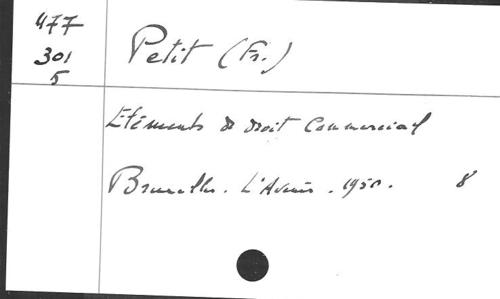 477
301
5
Petit (Fr.)
Eléments de droit Commercial
Bruxelles. L'Avenir. 1950. 8